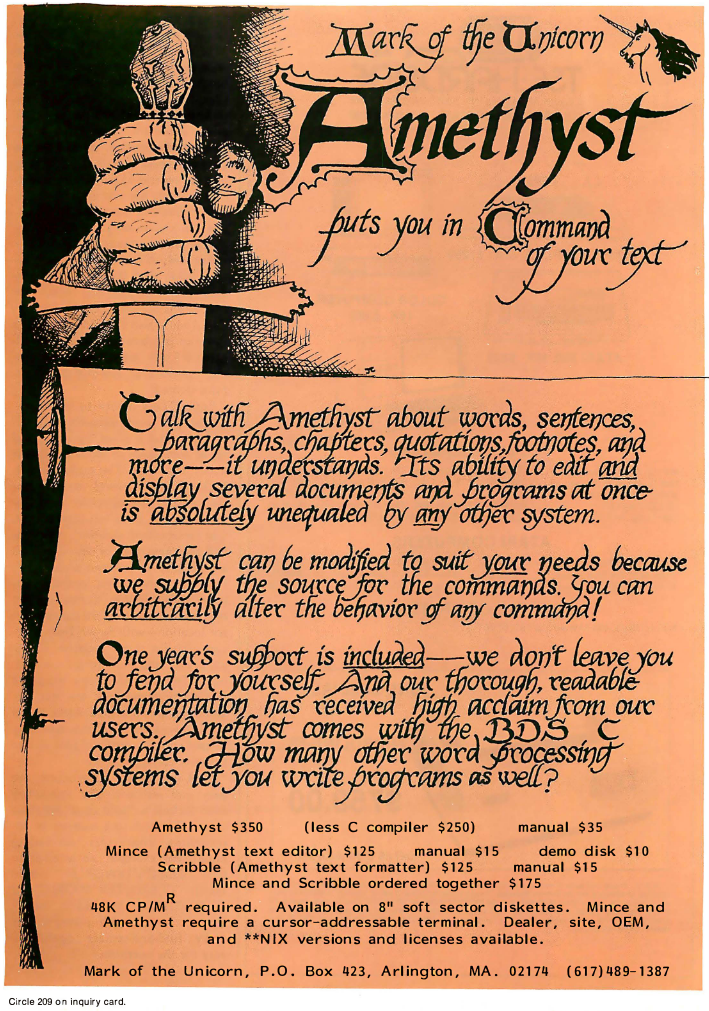 Mark of the Unicorn
Amethyst
puts you in Command
of your text
Talk with Amethyst about words, sentences,
paragraphs, chapters, quotations, footnotes, and
more--it understands. Its ability to edit and
display several documents and programs at once
is absolutely unequaled by any other system.
Amethyst can be modified to suit your needs because
we supply the source for the commands. You can
arbitrarily alter the behavior of any command!
One year's support is included--we don't leave you
to fend for yourself. And our thorough, readable
documentation has received high acclaim from our
users. Amethyst comes with the BDS C
compiler. How many other word processing
systems let you write programs as well?
Amethyst $350 (less C compiler $250) manual $35
Mince (Amethyst text editor) $125 manual $15 demo disk $10
Scribble (Amethyst text formatter) $125 manual $15
Mince and Scribble ordered together $175
48K CP/M^R required. Available on 8" soft sector diskettes. Mince and
Amethyst require a cursor-addressable terminal. Dealer, site, OEM,
and **NIX versions and licenses available.
Mark of the Unicorn, P.O. Box 423, Arlington, MA. 02174 (617)489-1387
Circle 209 on inquiry card.